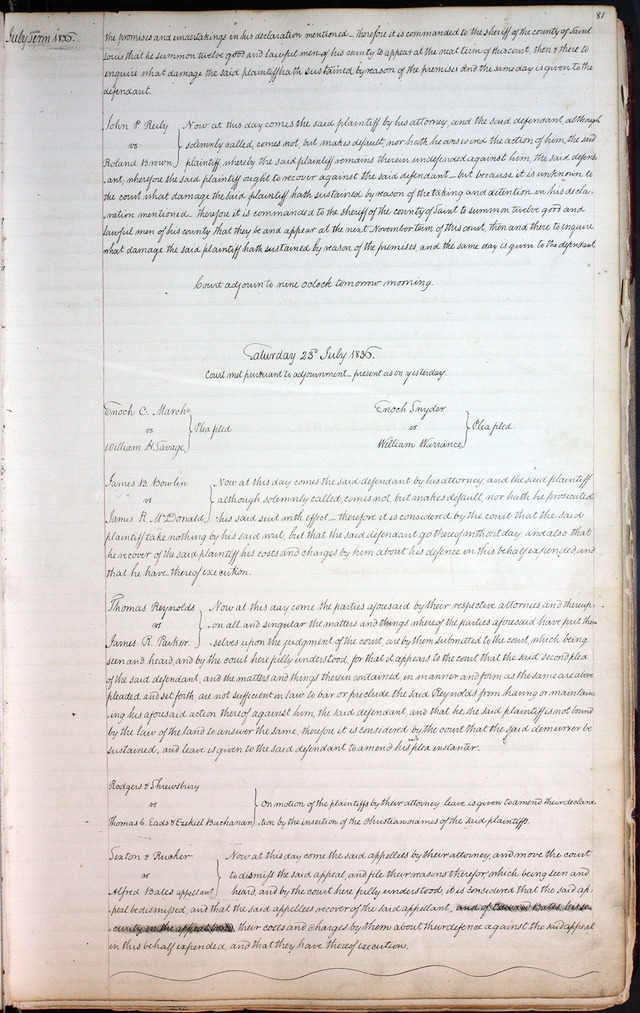 81
July Term 1836.
the promises and undertakings in his declaration mentioned_ therefore it is commanded to the sheriff of the county of Saint
Louis that he summon twelve good and lawful men of his county to appear at the next term of this court, then & there to
enquire what damage the said plaintiff hath sustained by reason of the premises and the same day is given to the
defendant.
John P. Reily
vs
Roland Brown
Now at this day comes the said plaintiff by his attorney, and the said defendant, although
solemnly called, comes not, but makes default; nor hath he answered the action of him, the said
plaintiff whereby the said plaintiff remains therein undefended against him, the said defend-
ant; wherefore the said plaintiff ought to recover against the said defendant_ but because it is unknown to
the court what damage the said plaintiff hath sustained by reason of the taking and detention in his decla-
ration mentioned_ therefore it is commanded to the sheriff of the county of Saint to summon twelve good and
lawful men of his county that they be and appear at the next November term of this court, then and there to enquire
what damage the said plaintiff hath sustained by reason of the premises, and the same day is given to the defendant
Court adjourn to nine oclock tomorrow morning.
Saturday 23d July 1836.
Court met pursuant to adjournment_ present as on yesterday.
Enoch C. March
vs
William H. Savage
Plea filed
Enoch Snyder
vs
William Warrance
Plea filed.
James B. Bowlin
vs
James R. McDonald
Now at this day comes the said defendant by his attorney, and the said plaintiff
although solemnly called, comes not, but makes default, nor hath he prosecuted
his said suit with effect_ therefore it is considered by the court that the said
plaintiff take nothing by his said writ, but that the said defendant go thereof without day, and also that
he recover of the said plaintiff his costs and charges by him about his defence in this behalf expended, and
that he have thereof execution.
Thomas Reynolds
vs
James R. Parker
Now at this day come the parties aforesaid by their respective attornies, and thereup-
on all and singular the matters and things where of the parties aforesaid have put them
selves upon the judgment of the court, are by them submitted to the court, which being
seen and heard, and by the court here fully understood, for that it appears to the court that the said second plea
of the said defendant, and the matters and things therein contained, in manner and form as the same are above
pleaded and set forth, are not sufficient in law to bar or preclude the said Reynolds from having or maintain-
ing his aforesaid action thereof against him, the said defendant, and that he, the said plaintiff is not bound
by the law of the land to answer the same, therefore it is considered by the court that the said demurrer be
sustained, and leave is given to the said defendant to amend his plea instanter.
Rodgers & Shrewsbury
vs
Thomas C. Eads & Ezekiel Buchanan
On motion of the plaintiffs by their attorney, leave is given to amend their declara-
tion by the insertion of the Christian names of the said plaintiffs.
Sexton & Rucker
vs
Alfred Bates appellant
Now at this day come the said appellees by their attorney, and move the court
to dismiss the said appeal, and file their reasons therefor, which being seen and
heard, and by the court here fully understood, it is considered that the said ap-
peal be dismissed, and that the said appellees recover of the said appellant, and of Edward Bates, his se-
curity in the appeal bond, their costs and charges by them about their defence against the said appeal
in this behalf expended, and that they have thereof execution.